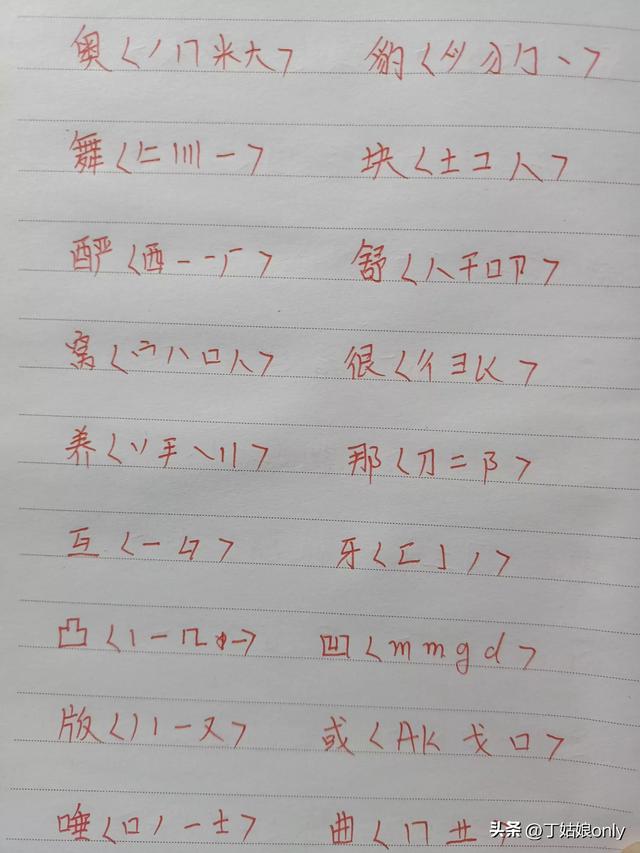 奥〈丿冂米大〉 豹〈豸勹丶〉
舞〈𠂉二川一〉 块〈土コ人〉
酽〈酉一一厂〉 舒〈人干口卩〉
窝〈宀八口人〉 很〈彳ヨ〉
养〈丷キ乀川〉 那〈刀二阝〉
互〈一〉 牙〈匚亅丿〉
凸〈丨一〉 凹〈mmgd〉
版〈丿丨一又〉 或〈AK 戈口〉
唾〈口丿一士〉 曲〈冂〉
头条 @丁姑娘only